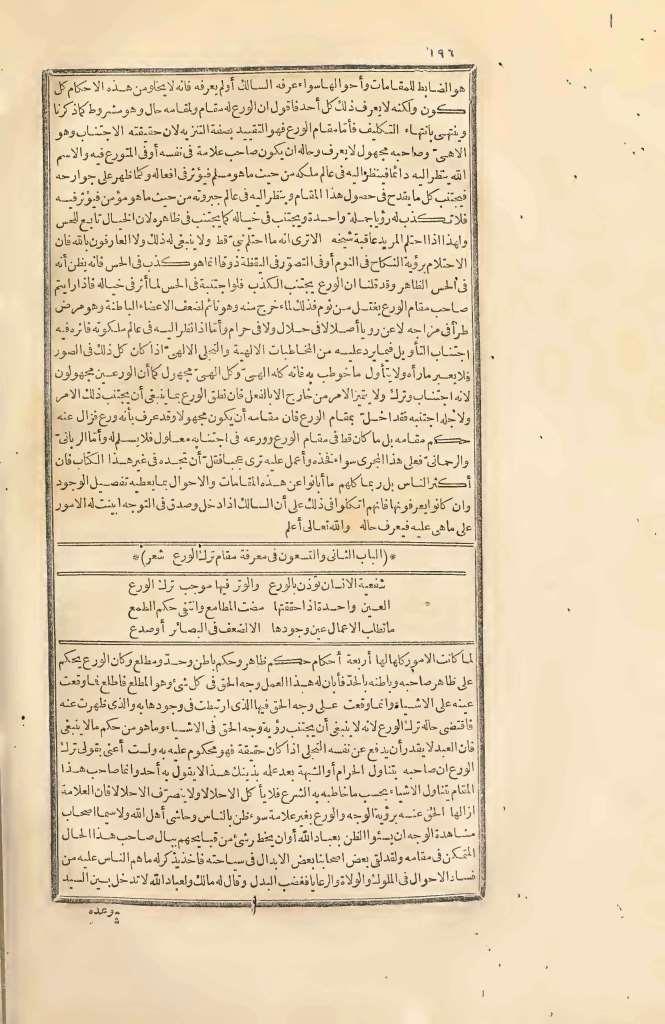 ١٩٦
هو الضابط للمقامات وأحوالها سواء عرفه السالك أو لم يعرفه فانه لا يخلو من هذه الاحكام كل
كون ولكنه لا يعرف ذلك كل أحد فاقول ان الورع له مقام ولمقامه حال وهو مشروط كما ذكرنا
وينتهى بانتهاء التكليف فأما مقام الورع فهو التقييد بصفة التنزيه لان حقيقته الاجتناب وهو
الاهىّ وصاحبه مجهول لا يعرف وحاله ان يكون صاحب علامة فى نفسه أو فى المتورع فيه والاسم
الله ينظر اليه دائما فينظر اليه فى عالم ملكه من حيث ما هو مسلم فيؤثر فى افعاله وكلما ظهر على جوارحه
فيجتنب كل ما يقدح فى حصول هذا المقام وينظر اليه فى عالم جبروته من حيث ما هو مؤمن فيؤثر فيه
فلا تكذب له رؤيا جملة واحدة ويجتنب فى خياله كما يجتنب فى ظاهره لان الخيال تابع للحس
ولهذا اذا احتلم المريد عاقبة شيخه الاترى انه ما احتلم نبىّ قط ولا ينبغى له ذلك ولا العارفون بالله فان
الاحتلام برؤية النكاح فى النوم أو فى التصوّر فى اليقظة ذوقا انما هو كذب فى الحس فانه يظن أنه
فى الحس الظاهر وقد قلنا ان الورع يجتنب الكذب فلو اجتنبه فى الحس لما أثر فى خياله فاذا رايتم
صاحب مقام الورع يغتسل من نوم فذلك لماء خرج منه وهو نائم لضعف الاعضاء الباطنة وهو مرض
طرأ فى مزاجه لا عن رويا أصلا لا فى حلال ولا فى حرام وأما اذا نظر اليه فى عالم ملكوته فاثره فيه
اجتناب التأويل فيما يرد عليه من المخاطبات الالهية والتجلى الالهىّ اذا كان كل ذلك فى الصور
فلا يعبر ما رآه ولا يتأول ما خوطب به فانه كله الهىّ وكل الهىّ مجهول كما أن الورعين مجهولون
لانه اجتناب وترك ولا يتميز الامر من خارج الا بالفعل فان نطق الورع بما ينبغى أن يجتنب ذلك الامر
ولاجله اجتنبه فقد اخلّ بمقام الورع فان مقامه أن يكون مجهولا وقد عرف بأنه ورع فزال عنه
حكم مقامه بل ما كان قط فى مقام الورع وورعه فى اجتنابه معلول فلا يسلم له وأما الربانىّ
والرحمانىّ فعلى هذا المجرى سواء فخذه وأعمل عليه ترى عجبا فقل أن تجده فى غير هذا الكتاب فان
أكثر الناس بل ربما كلهم ما أبانوا عن هذه المقامات والاحوال بما يعطيه تفصيل الوجود
وان كانوا يعرفونها فانهم اتكلوا فى ذلك على أن السالك اذا دخل وصدق فى التوجه ابينت له الامور
على ما هى عليه فيعرف حاله والله تعالى أعلم
*(الباب الثانى والتسعون فى معرفة مقام ترك الورع شعر)*
شفعية الانسان تؤذن بالورع والوتر فيها موجب ترك الورع
العين واحدة اذا حققتها مضت المطامع وانتفى حكم الطمع
ما تطلب الاعمال عين وجودها الا لضعف فى البصائر أو صدع
لما كانت الامور كلها لها أربعة أحكام حكم ظاهر وحكم باطن وحدّ ومطلع وكان الورع يحكم
على ظاهر صاحبه وباطنه بالحدّ فأبان له هذا العمل وجه الحق فى كل شئ وهو المطلع فاطلع فما وقعت
عينه على الاشياء وانما وقعت على وجه الحق فيها الذى ارتبطت فى وجودها به والذى ظهرت عنه
فاقتضى حاله ترك الورع لانه لا ينبغى أن يجتنب رؤية وجه الحق فى الاشياء وما هو من حكم ما لا ينبغى
فان العبد لا يقدر أن يدفع عن نفسه التجلى اذا كان حقيقة فهو محكوم عليه به ولست أعنى بقولى ترك
الورع ان صاحبه يتناول الحرام أو الشبهة بعد علمه بذينك هذا لا يقول به أحد وانما صاحب هذا
المقام يتناول الاشياء بحسب ما خاطبه به الشرع فلا يأكل الاحلالا ولا يتصرّف الاحلالا فان العلامة
ازالها الحق عنه برؤية الوجه والورع بغير علامة سوء ظن بالناس وحاشى أهل الله ولاسيما اصحاب
مشاهدة الوجه ان يسئوا الظن بعباد الله أو ان يخطر شئ من قبايحهم ببال صاحب هذا الحال
المتمكن فى مقامه ولقد لقى بعض اصحابنا بعض الابدال فى سياحته فاخذ يذكر له ما هم الناس عليه من
فساد الاحوال فى الملوك والولاة والرعايا فغضب البدل وقال له مالك ولعباد الله لا تدخل بين السيد
وعبده